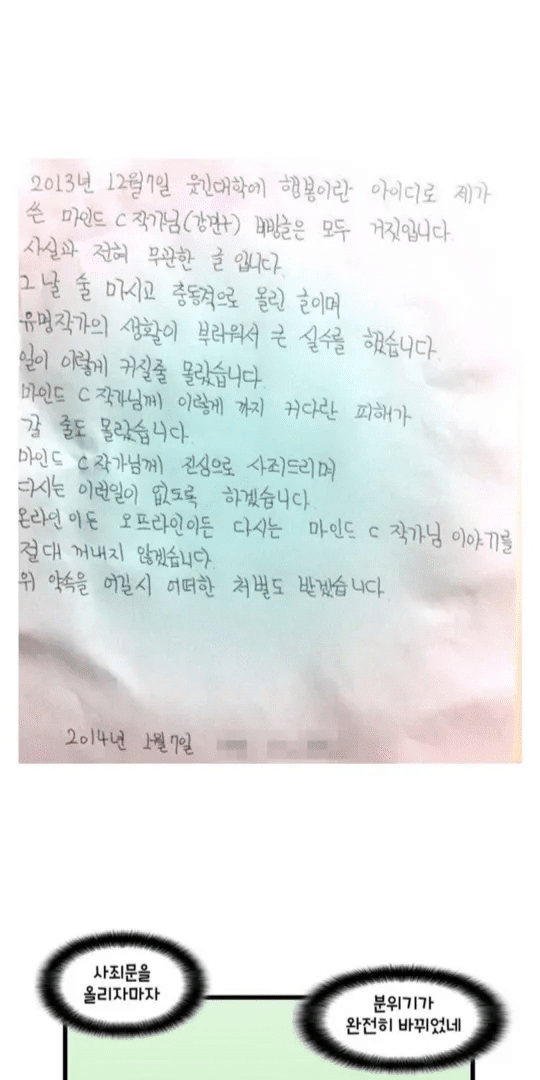 2013년 12월 7일 웃긴대학에 행봉이란 아이디로 제가
쓴 마인드 C 작가님(강민구) 비방글은 모두 거짓입니다.
사실과 전혀 무관한 글 입니다.
그 날 술 마시고 충동적으로 올린 글이며
유명작가의 생활이 부러워서 큰 실수를 했습니다.
일이 이렇게 커질줄 몰랐습니다.
마인드 C 작가님께 이렇게 까지 커다란 피해가
갈 줄도 몰랐습니다.
마인드 C 작가님께 진심으로 사죄드리며
다시는 이런일이 없도록 하겠습니다.
온라인이든 오프라인이든 다시는 마인드 C 작가님 이야기를
절대 꺼내지 않겠습니다.
위 약속을 어길시 어떠한 처벌도 받겠습니다.
2014년 1월 7일
사죄문을
올리자마자
분위기가
완전히 바뀌었네